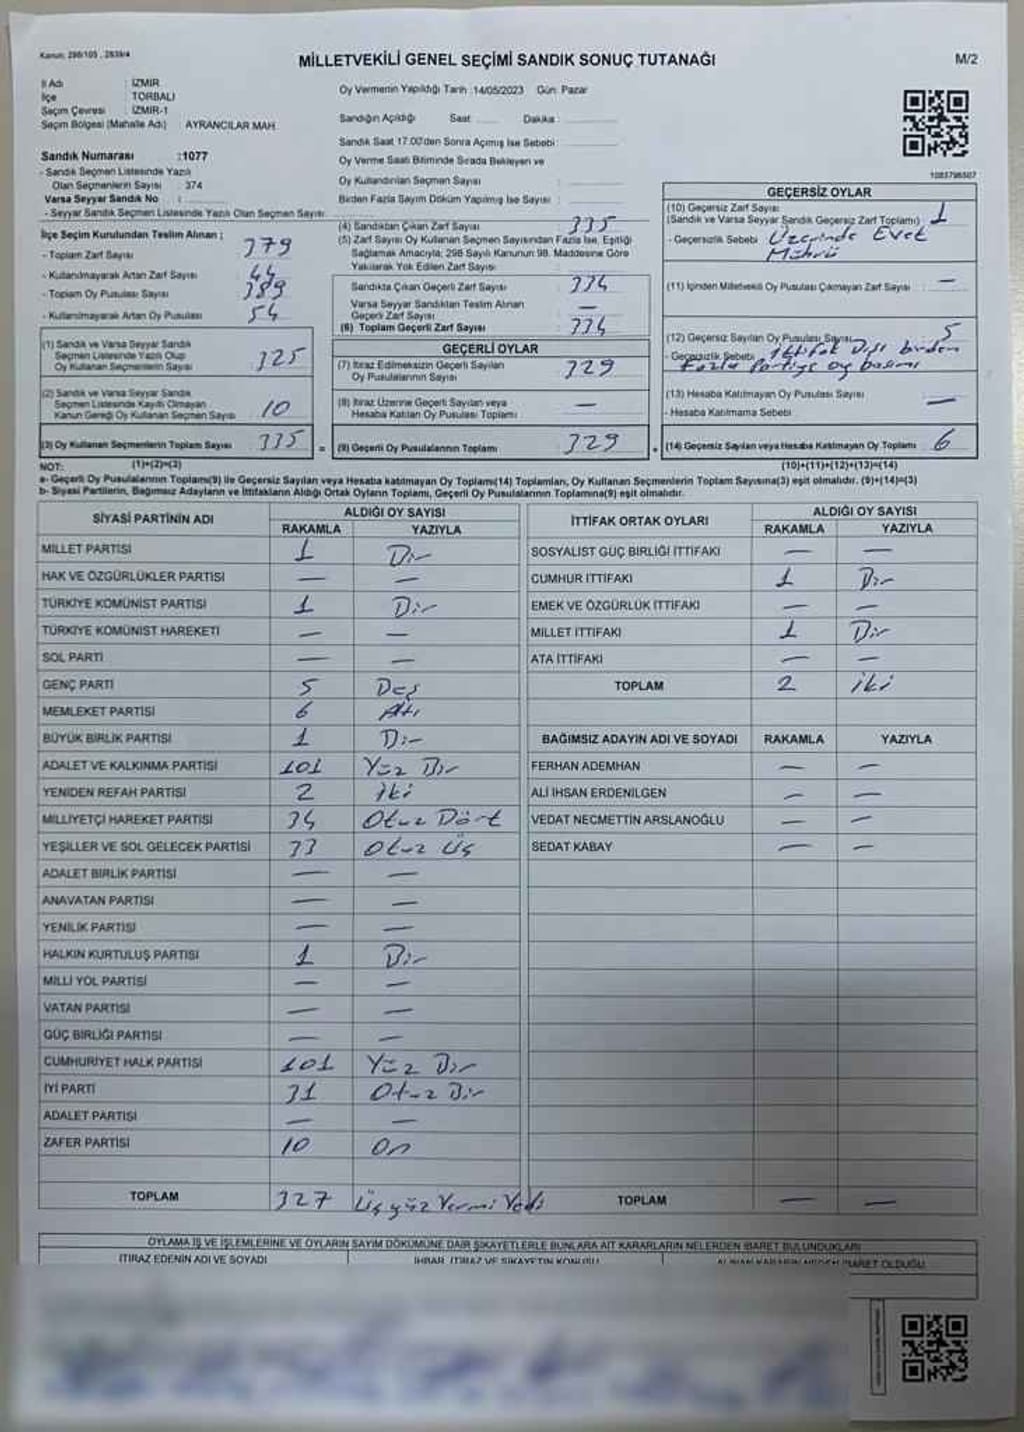 Kanun: 298/105 , 2839/4
MİLLETVEKİLİ GENEL SEÇİMİ SANDIK SONUÇ TUTANAĞI
M/2
İl Adı : İZMİR
İlçe : TORBALI
Seçim Çevresi : İZMİR-1
Seçim Bölgesi (Mahalle Adı) : AYRANCILAR MAH.
Sandık Numarası :1077
- Sandık Seçmen Listesinde Yazılı
Olan Seçmenlerin Sayısı : 374
Varsa Seyyar Sandık No :
- Seyyar Sandık Seçmen Listesinde Yazılı Olan Seçmen Sayısı:
İlçe Seçim Kurulundan Teslim Alınan ;
- Toplam Zarf Sayısı : 379
- Kullanılmayarak Artan Zarf Sayısı : 44
- Toplam Oy Pusulası Sayısı : 389
- Kullanılmayarak Artan Oy Pusulası : 54
(1) Sandık ve Varsa Seyyar Sandık
Seçmen Listesinde Yazılı Olup
Oy Kullanan Seçmenlerin Sayısı : 325
(2) Sandık ve Varsa Seyyar Sandık
Seçmen Listesinde Kayıtlı Olmayan
Kanun Gereği Oy Kullanan Seçmen Sayısı : 10
(3) Oy Kullanan Seçmenlerin Toplam Sayısı : 335 =
Oy Vermenin Yapıldığı Tarih :14/05/2023 Gün: Pazar
Sandığın Açıldığı Saat : Dakika :
Sandık Saat 17:00'den Sonra Açılmış İse Sebebi :
Oy Verme Saati Bitiminde Sırada Bekleyen ve
Oy Kullandırılan Seçmen Sayısı :
Birden Fazla Sayım Döküm Yapılmış İse Sayısı :
(4) Sandıktan Çıkan Zarf Sayısı : 335
(5) Zarf Sayısı Oy Kullanan Seçmen Sayısından Fazla İse, Eşitliği
Sağlamak Amacıyla; 298 Sayılı Kanunun 98. Maddesine Göre
Yakılarak Yok Edilen Zarf Sayısı :
Sandıkta Çıkan Geçerli Zarf Sayısı : 334
Varsa Seyyar Sandıktan Teslim Alınan
Geçerli Zarf Sayısı : —
(6) Toplam Geçerli Zarf Sayısı : 334
GEÇERLİ OYLAR
(7) İtiraz Edilmeksizin Geçerli Sayılan
Oy Pusulalarının Sayısı : 329
(8) İtiraz Üzerine Geçerli Sayılan veya
Hesaba Katılan Oy Pusulası Toplamı : —
(9) Geçerli Oy Pusulalarının Toplamı : 329 +
1083796507
GEÇERSİZ OYLAR
(10) Geçersiz Zarf Sayısı
(Sandık ve Varsa Seyyar Sandık Geçersiz Zarf Toplamı) : 1
- Geçersizlik Sebebi : Üzerinde Evet
Mührü
(11) İçinden Milletvekili Oy Pusulası Çıkmayan Zarf Sayısı : —
(12) Geçersiz Sayılan Oy Pusulası Sayısı : 5
- Geçersizlik Sebebi : İttifak Dışı birden
Fazla Partiye oy basımı
(13) Hesaba Katılmayan Oy Pusulası Sayısı : —
- Hesaba Katılmama Sebebi :
(14) Geçersiz Sayılan veya Hesaba Katılmayan Oy Toplamı : 6
NOT: (1)+(2)=(3) (10)+(11)+(12)+(13)=(14)
a- Geçerli Oy Pusulalarının Toplamı(9) ile Geçersiz Sayılan veya Hesaba katılmayan Oy Toplamı(14) Toplamları, Oy Kullanan Seçmenlerin Toplam Sayısına(3) eşit olmalıdır. (9)+(14)=(3)
b- Siyasi Partilerin, Bağımsız Adayların ve İttifakların Aldığı Ortak Oyların Toplamı, Geçerli Oy Pusulalarının Toplamına(9) eşit olmalıdır.
SİYASİ PARTİNİN ADI ALDIĞI OY SAYISI
RAKAMLA YAZIYLA
MİLLET PARTİSİ 1 Bir
HAK VE ÖZGÜRLÜKLER PARTİSİ — —
TÜRKİYE KOMÜNİST PARTİSİ 1 Bir
TÜRKİYE KOMÜNİST HAREKETİ — —
SOL PARTİ — —
GENÇ PARTİ 5 Beş
MEMLEKET PARTİSİ 6 Altı
BÜYÜK BİRLİK PARTİSİ 1 Bir
ADALET VE KALKINMA PARTİSİ 101 Yüz Bir
YENİDEN REFAH PARTİSİ 2 İki
MİLLİYETÇİ HAREKET PARTİSİ 34 Otuz Dört
YEŞİLLER VE SOL GELECEK PARTİSİ 33 Otuz Üç
ADALET BİRLİK PARTİSİ — —
ANAVATAN PARTİSİ — —
YENİLİK PARTİSİ — —
HALKIN KURTULUŞ PARTİSİ 1 Bir
MİLLİ YOL PARTİSİ — —
VATAN PARTİSİ — —
GÜÇ BİRLİĞİ PARTİSİ — —
CUMHURİYET HALK PARTİSİ 101 Yüz Bir
İYİ PARTİ 31 Otuz Bir
ADALET PARTİSİ — —
ZAFER PARTİSİ 10 On
TOPLAM 327 Üç yüz Yirmi Yedi
İTTİFAK ORTAK OYLARI ALDIĞI OY SAYISI
RAKAMLA YAZIYLA
SOSYALİST GÜÇ BİRLİĞİ İTTİFAKI — —
CUMHUR İTTİFAKI 1 Bir
EMEK VE ÖZGÜRLÜK İTTİFAKI — —
MİLLET İTTİFAKI 1 Bir
ATA İTTİFAKI — —
TOPLAM 2 İki
BAĞIMSIZ ADAYIN ADI VE SOYADI RAKAMLA YAZIYLA
FERHAN ADEMHAN — —
ALİ İHSAN ERDENİLGEN — —
VEDAT NECMETTİN ARSLANOĞLU — —
SEDAT KABAY — —
TOPLAM — —
OYLAMA İŞ VE İŞLEMLERİNE VE OYLARIN SAYIM DÖKÜMÜNE DAİR ŞİKAYETLERLE BUNLARA AİT KARARLARIN NELERDEN İBARET BULUNDUKLARI
İTİRAZ EDENİN ADI VE SOYADI İHBAR, İTİRAZ VE ŞİKAYETİN KONUSU İBARET OLDUĞU